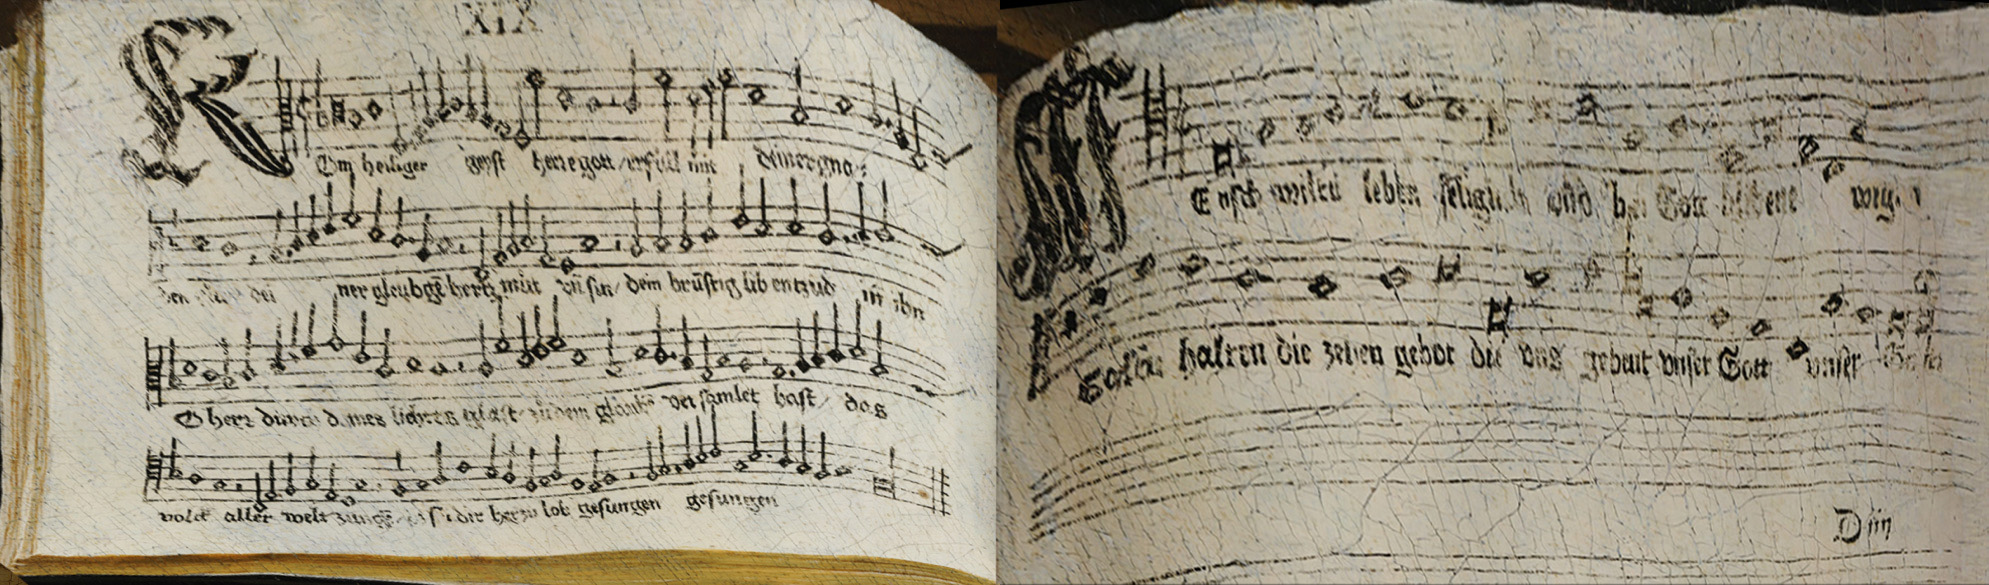 XIX
Kom heiliger geyst herre gott / erfüll mit diner gna:
den ner gleubgē hertz mut vñ sin / dein brüstig lib entzud in ihn
O herr durch deines lichtes glast zu dem glaubē versamlet hast / das
volck aller welt zunge dir herzu lob gesungen gesungen
Mensch wiltu leben seliglich vnd bei Gott bliben ewig
Soltu halten die zehen gebot die vns gebeut vnser Gott vnser
Diin